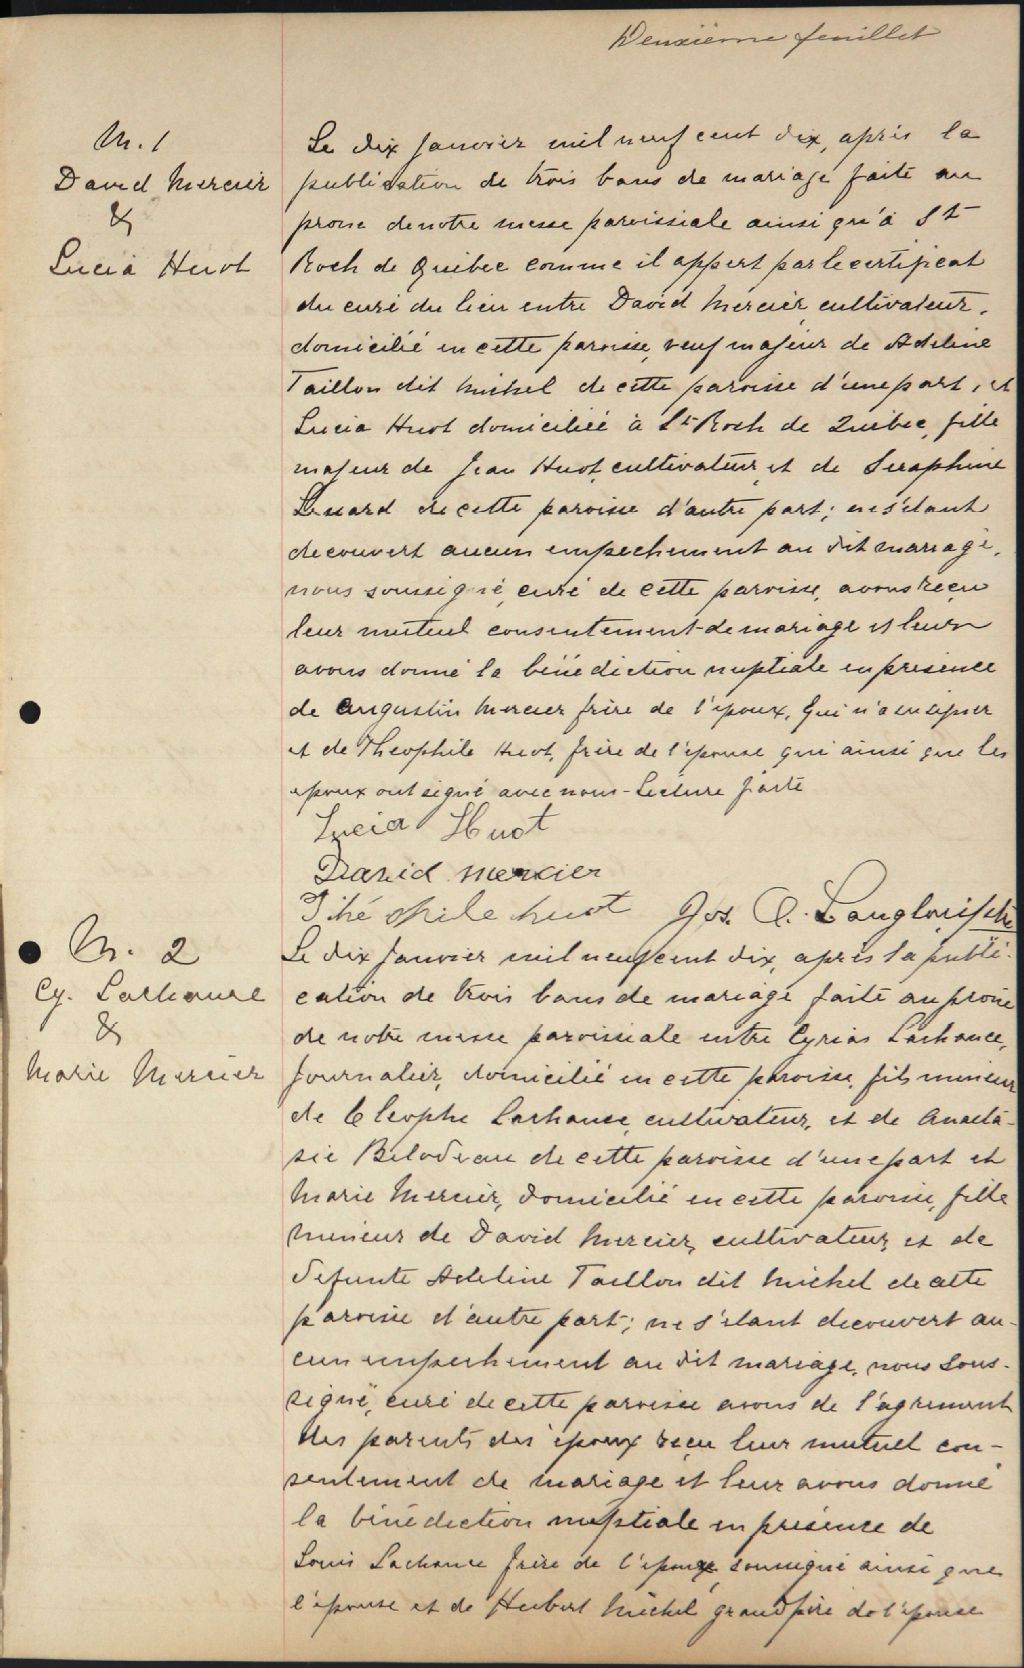 Deuxième feuillet
M. 1
David Mercier
&
Lucia Huot
Le dix Janvier mil neuf cent dix, après la
publication de trois bans de mariage faite au
prone de notre messe paroissiale ainsi qu'à St
Roch de Quebec comme il appert par le certificat
du curé du lieu entre David Mercier, cultivateur,
domicilié en cette paroisse, veuf majeur de Adeline
Taillon dit Michel de cette paroisse d'une part, et
Lucia Huot domiciliée à St Roch de Quebec, fille
majeur de Jean Huot, cultivateur, et de Seraphine
de cette paroisse d'autre part; ne s'étant
decouvert aucun empechement au dit mariage,
nous soussigné, curé de cette paroisse, avons reçu
leur mutuel consentement de mariage et leur
avons donné la bénédiction nuptiale en presence
de Augustin Mercier frère de l'époux, qui n'a su signer
et de Theophile Huot, frère de l'épouse qui ainsi que les
epoux ont signé avec nous - Lecture faite
Lucia Huot
David Mercier
Théophile huot Jos. O. Langlois ptre
M. 2
Cy. Lachance
&
Marie Mercier
Le dix Janvier mil neuf cent dix, après la publi-
cation de trois bans de mariage faite au prone
de notre messe paroissiale entre Cyrias Lachance,
Journalier, domicilié en cette paroisse, fils mineur
de Cleophe Lachance, cultivateur, et de Anasta-
sie Bilodeau de cette paroisse d'une part et
Marie Mercier, domicilié en cette paroisse, fille
mineur de David Mercier, cultivateur, et de
defunte Adeline Taillon dit Michel de cette
paroisse d'autre part; ne s'étant decouvert au-
cun empechement au dit mariage, nous sous-
signé, curé de cette paroisse avons de l'agrement
des parents des époux reçu leur mutuel con-
sentement de mariage et leur avons donné
la bénédiction nuptiale en présence de
Louis Lachance frère de l'époux, soussigné ainsi que
l'épouse et de Hubert Michel grandpère de l'épouse